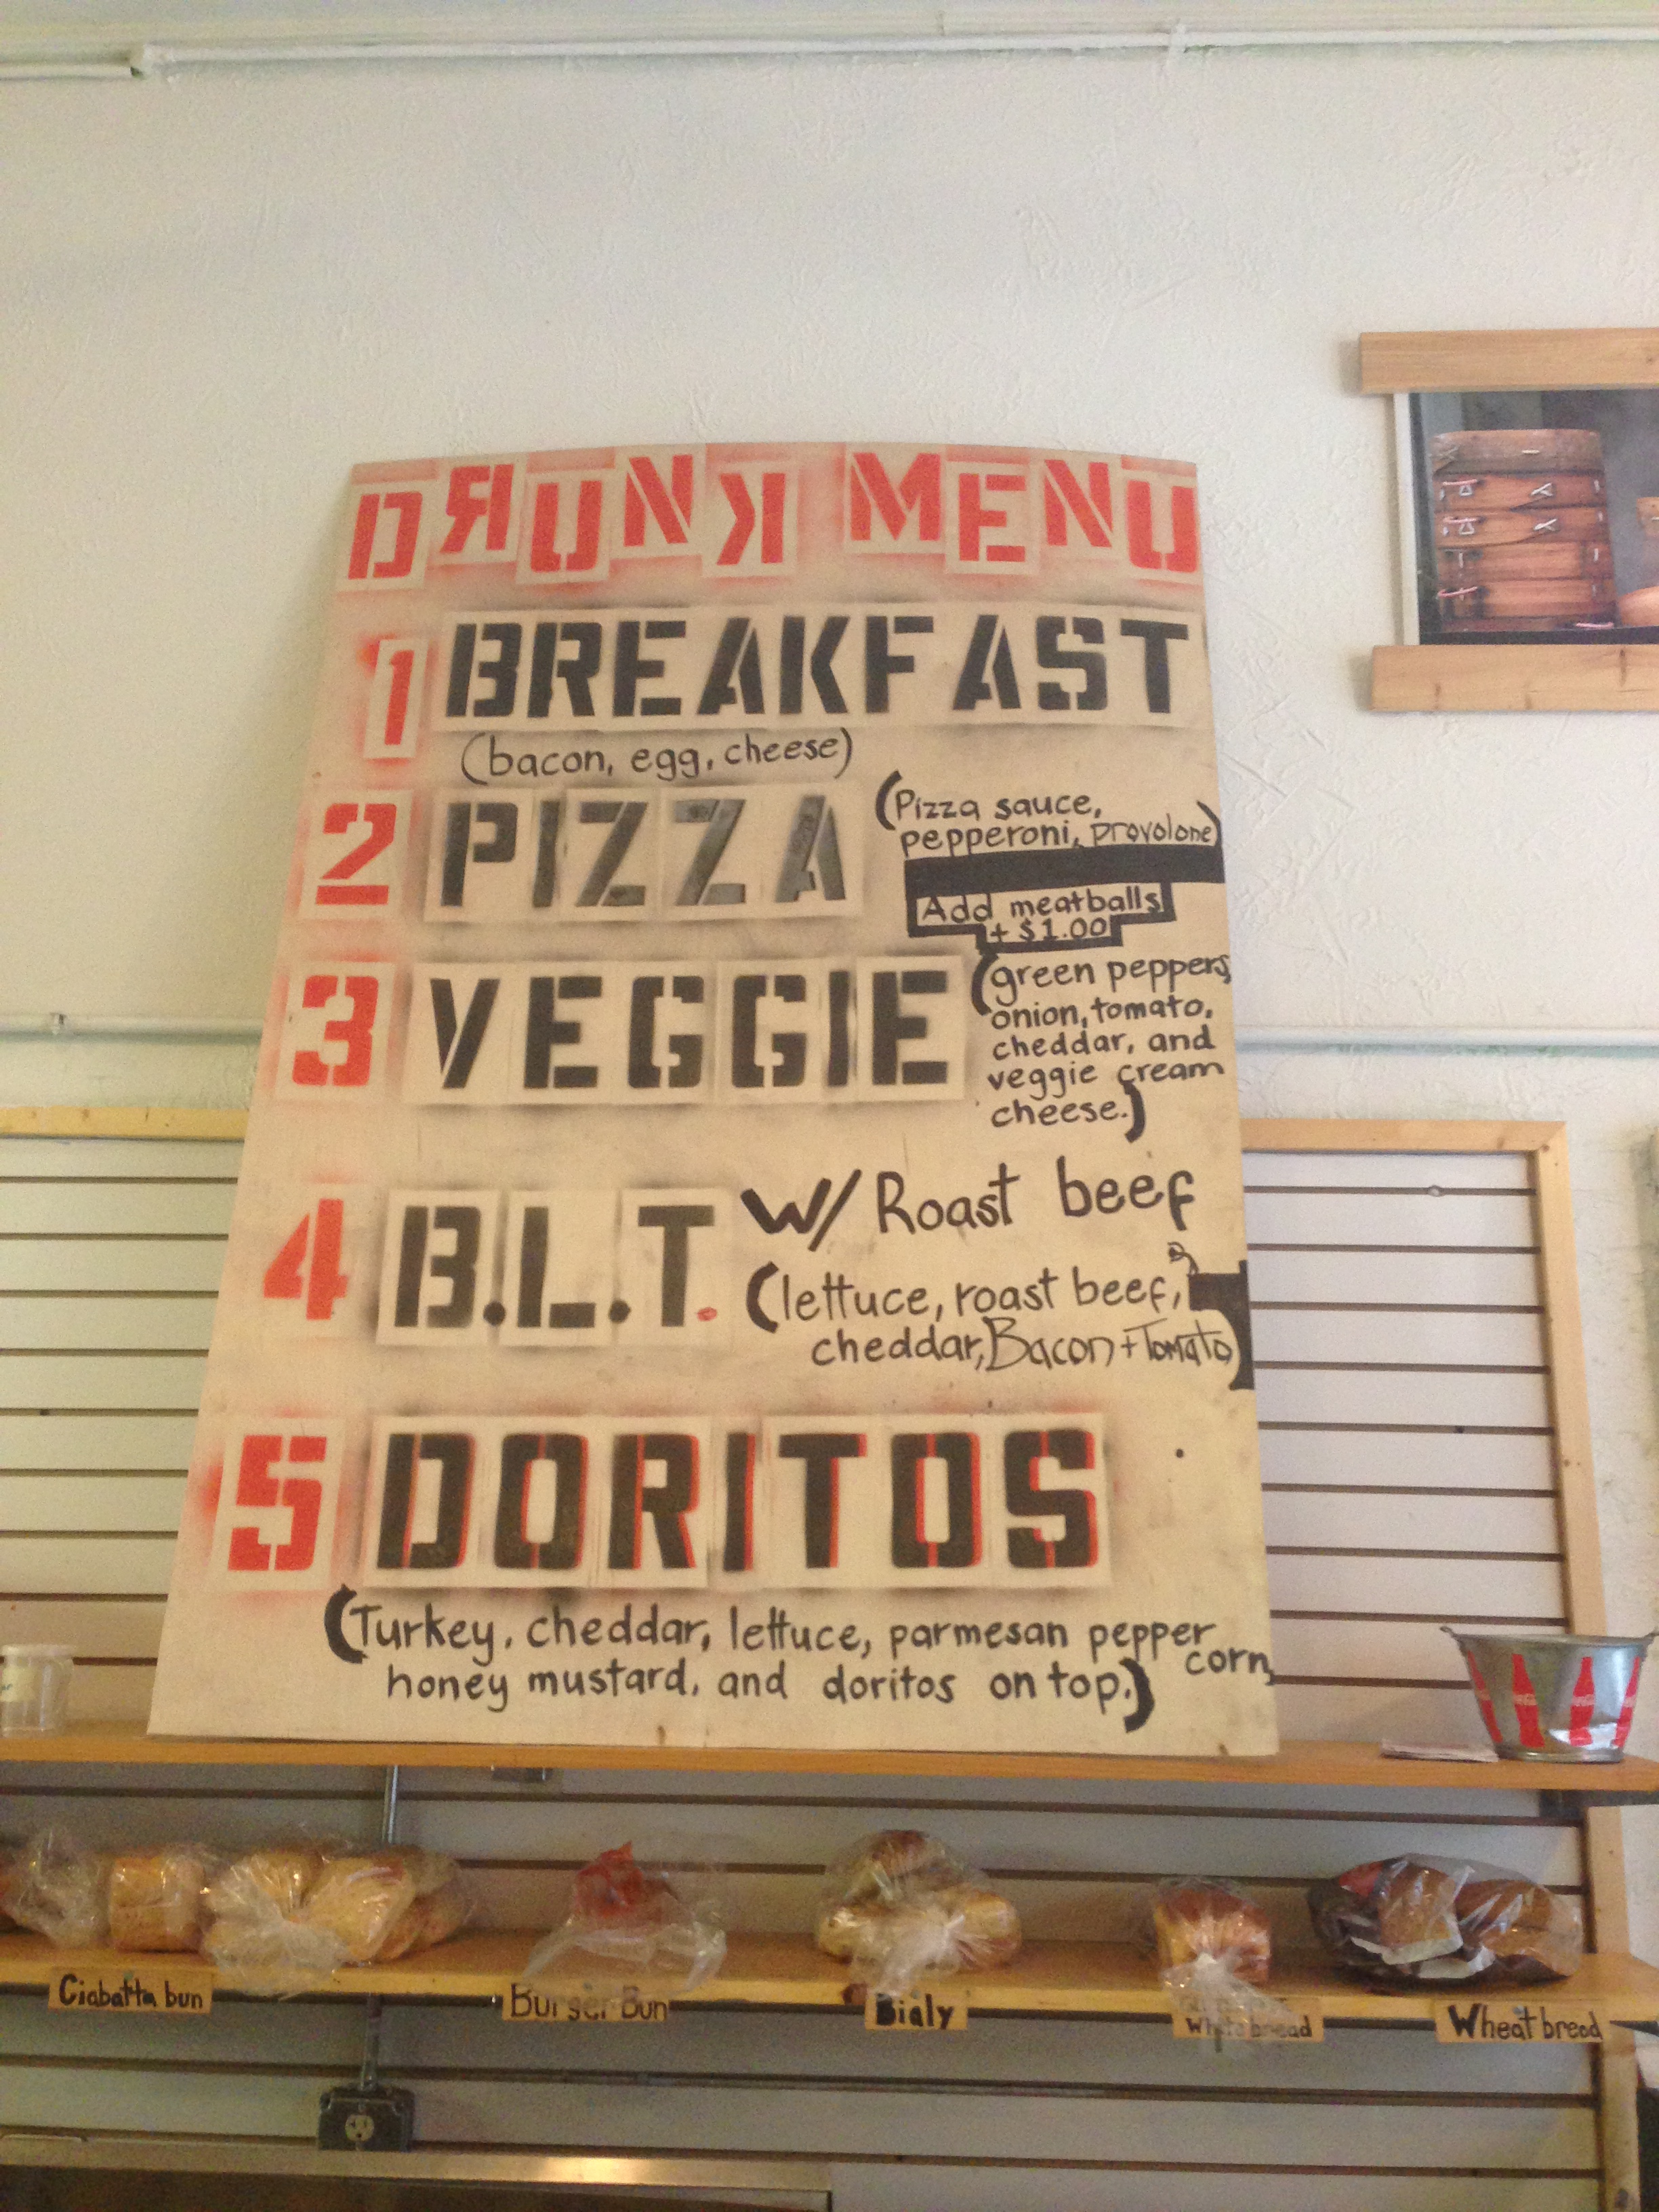 DRUNK MENU
1 BREAKFAST
(bacon, egg, cheese)
2 PIZZA
(Pizza sauce,
pepperoni, provolone)
Add meatballs
+ $1.00
3 VEGGIE
(green peppers,
onion, tomato,
cheddar, and
veggie cream
cheese.)
4 B.L.T. w/ Roast beef
(lettuce, roast beef,
cheddar, Bacon + Tomato)
5 DORITOS
(Turkey, cheddar, lettuce, parmesan pepper
corn,
honey mustard, and doritos on top.)
Ciabatta bun
Burger Bun
Bialy
White bread
Wheat bread